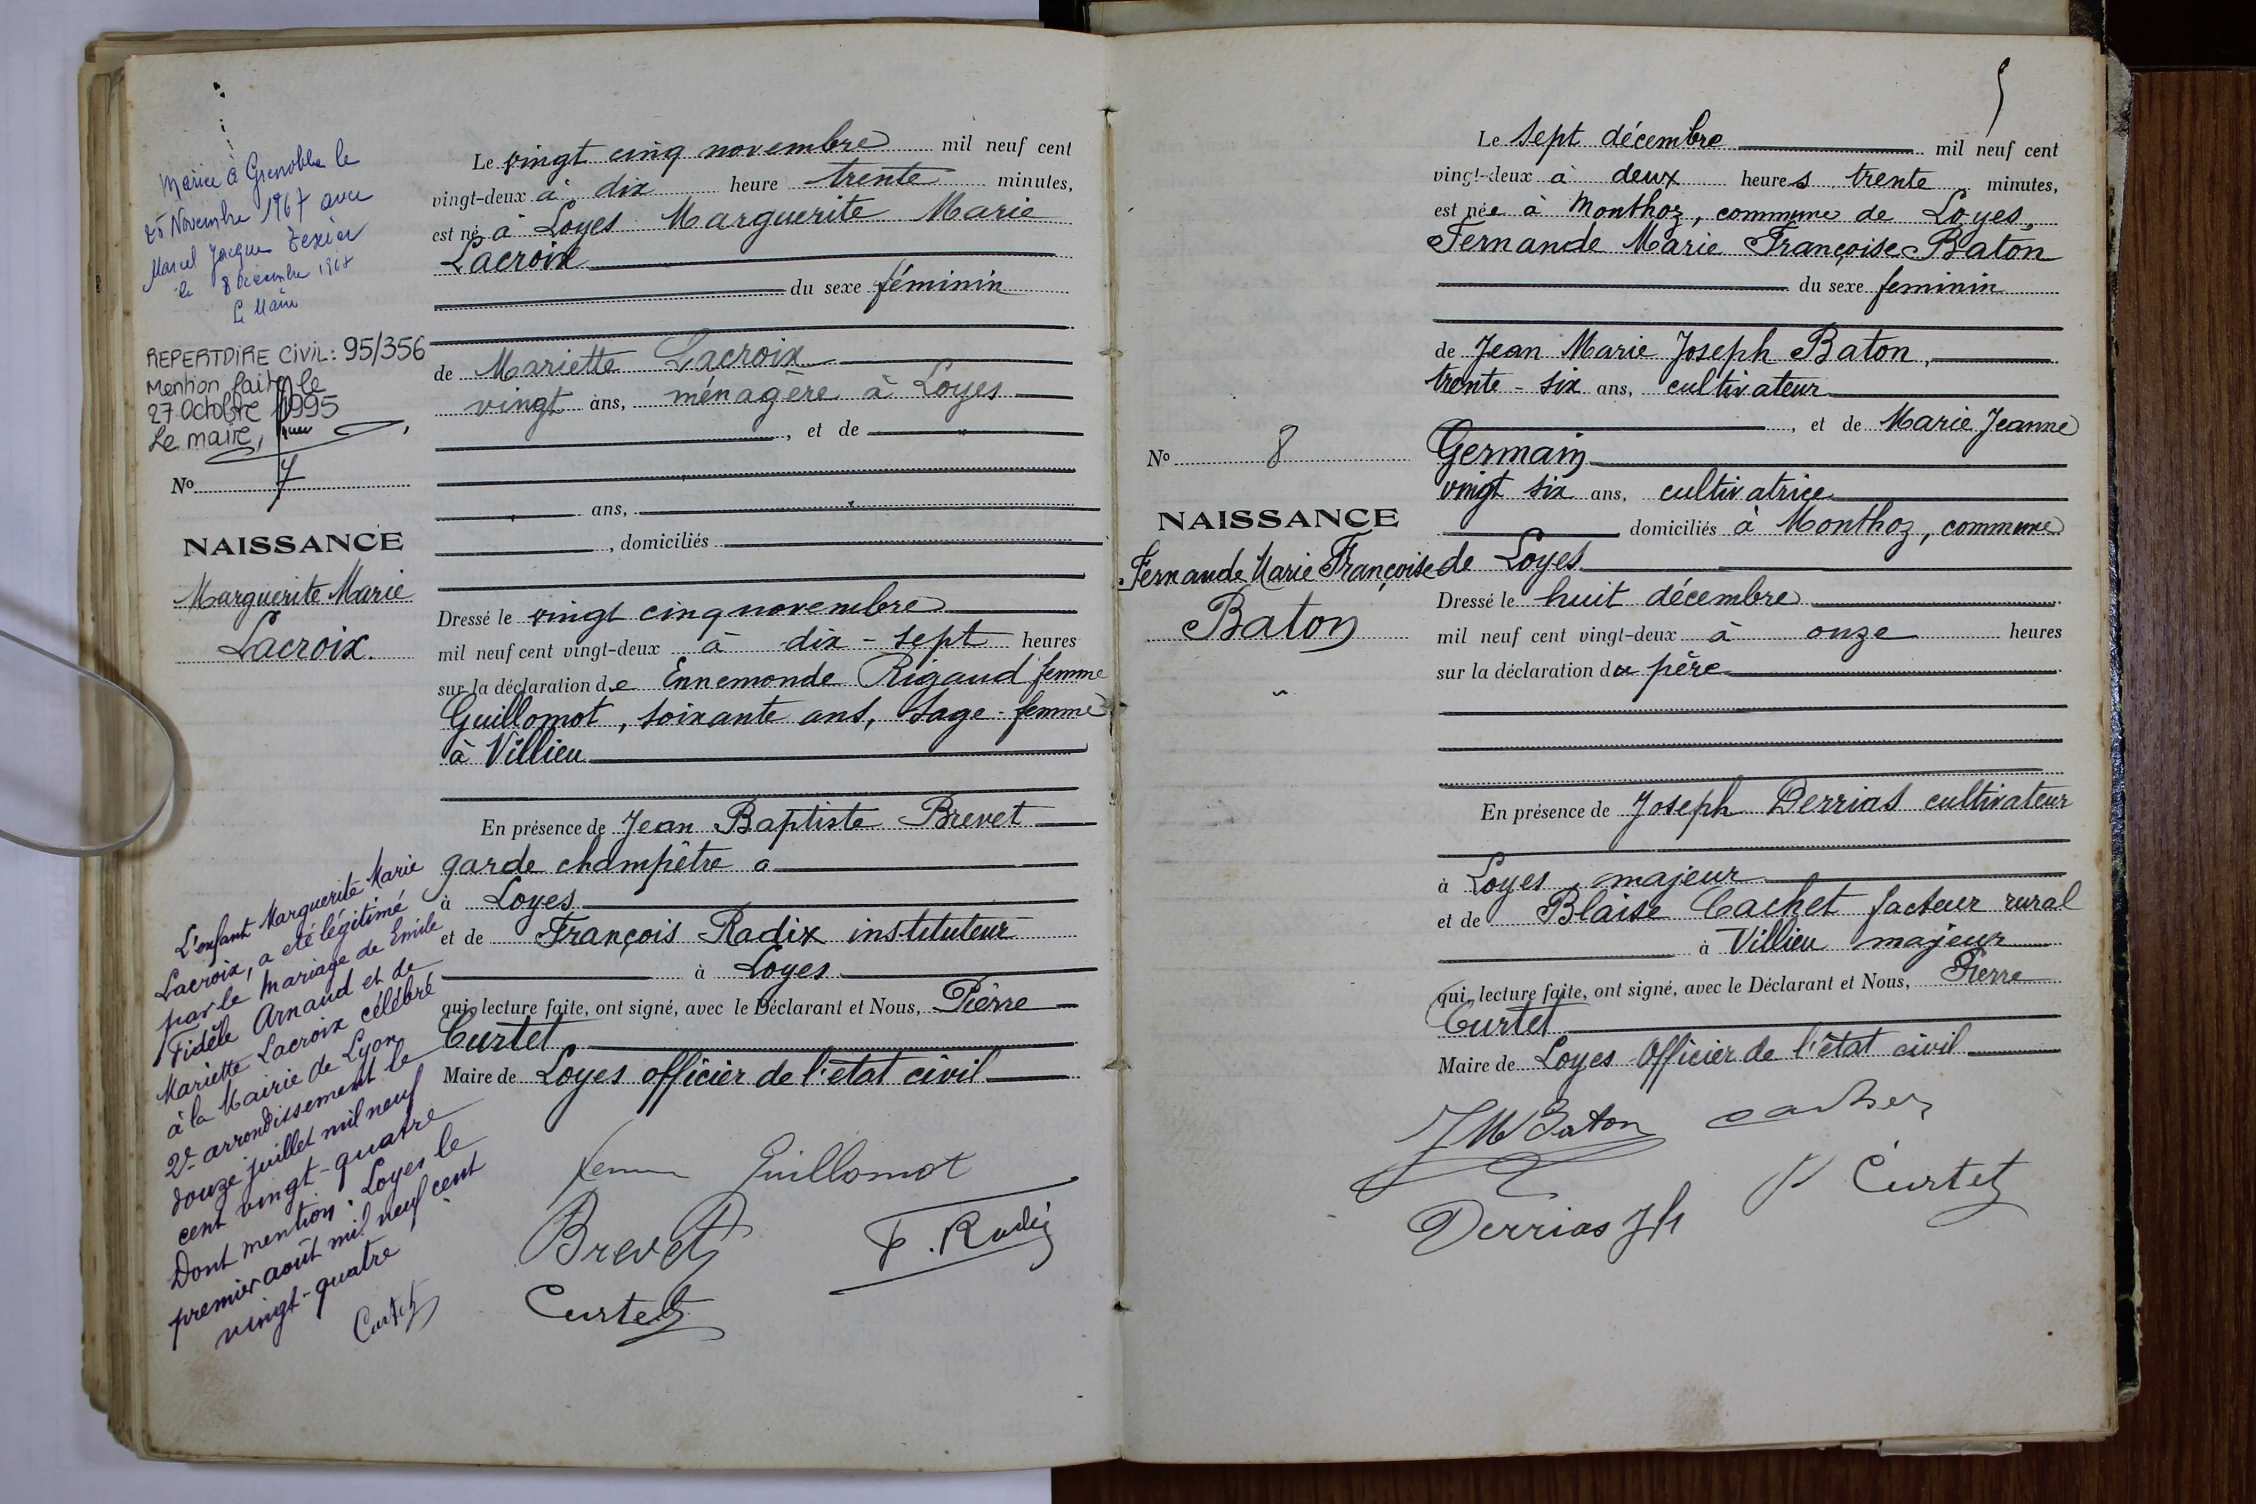 Mariée à Grenoble le
25 Novembre 1967 avec
Marcel Jacques Texier
le 8 Décembre 1967
Le Maire
REPERTOIRE CIVIL: 95/356
Mention faite le
27 Octobre 1995
Le maire,
No 7
NAISSANCE
Marguerite Marie
Lacroix.
L'enfant Marguerite Marie
Lacroix, a eté légitimé
par le mariage de Emile
Fidèle Arnaud et de
Mariette Lacroix célébré
à la Mairie de Lyon
2e arrondissement le
douze juillet mil neuf
cent vingt-quatre
Dont mention: Loyes le
premier août mil neuf cent
vingt-quatre
Curtet
Le vingt cinq novembre mil neuf cent
vingt-deux à dix heure trente minutes,
est né à Loyes Marguerite Marie
Lacroix
du sexe féminin
de Mariette Lacroix
vingt ans, ménagère à Loyes
, et de
ans,
, domiciliés
Dressé le vingt cinq novembre
mil neuf cent vingt-deux à dix-sept heures
sur la déclaration de Ennemonde Rigaud femme
Guillomot, soixante ans, sage-femme
à Villieu
En présence de Jean Baptiste Brevet
garde champêtre a
à Loyes
et de François Radix instituteur
à Loyes
qui, lecture faite, ont signé, avec le Déclarant et Nous, Pierre
Curtet
Maire de Loyes officier de l'état civil
femme Guillomot
Brevet F. Radix
Curtet
5
Le sept décembre mil neuf cent
vingt-deux à deux heures trente minutes,
est née à Monthoz, commune de Loyes,
Fernande Marie Françoise Baton
du sexe feminin
de Jean Marie Joseph Baton,
trente-six ans, cultivateur
, et de Marie Jeanne
Germain
vingt six ans, cultivatrice
domiciliés à Monthoz, commune
de Loyes
No 8
NAISSANCE
Fernande Marie Françoise
Baton
Dressé le huit décembre
mil neuf cent vingt-deux à onze heures
sur la déclaration du père
En présence de Joseph Derrias cultivateur
à Loyes, majeur
et de Blaise Cachet facteur rural
à Villieu majeur
qui, lecture faite, ont signé, avec le Déclarant et Nous, Pierre
Curtet
Maire de Loyes Officier de l'état civil
JM Baton cachet
P Curtet
Derrias Jh